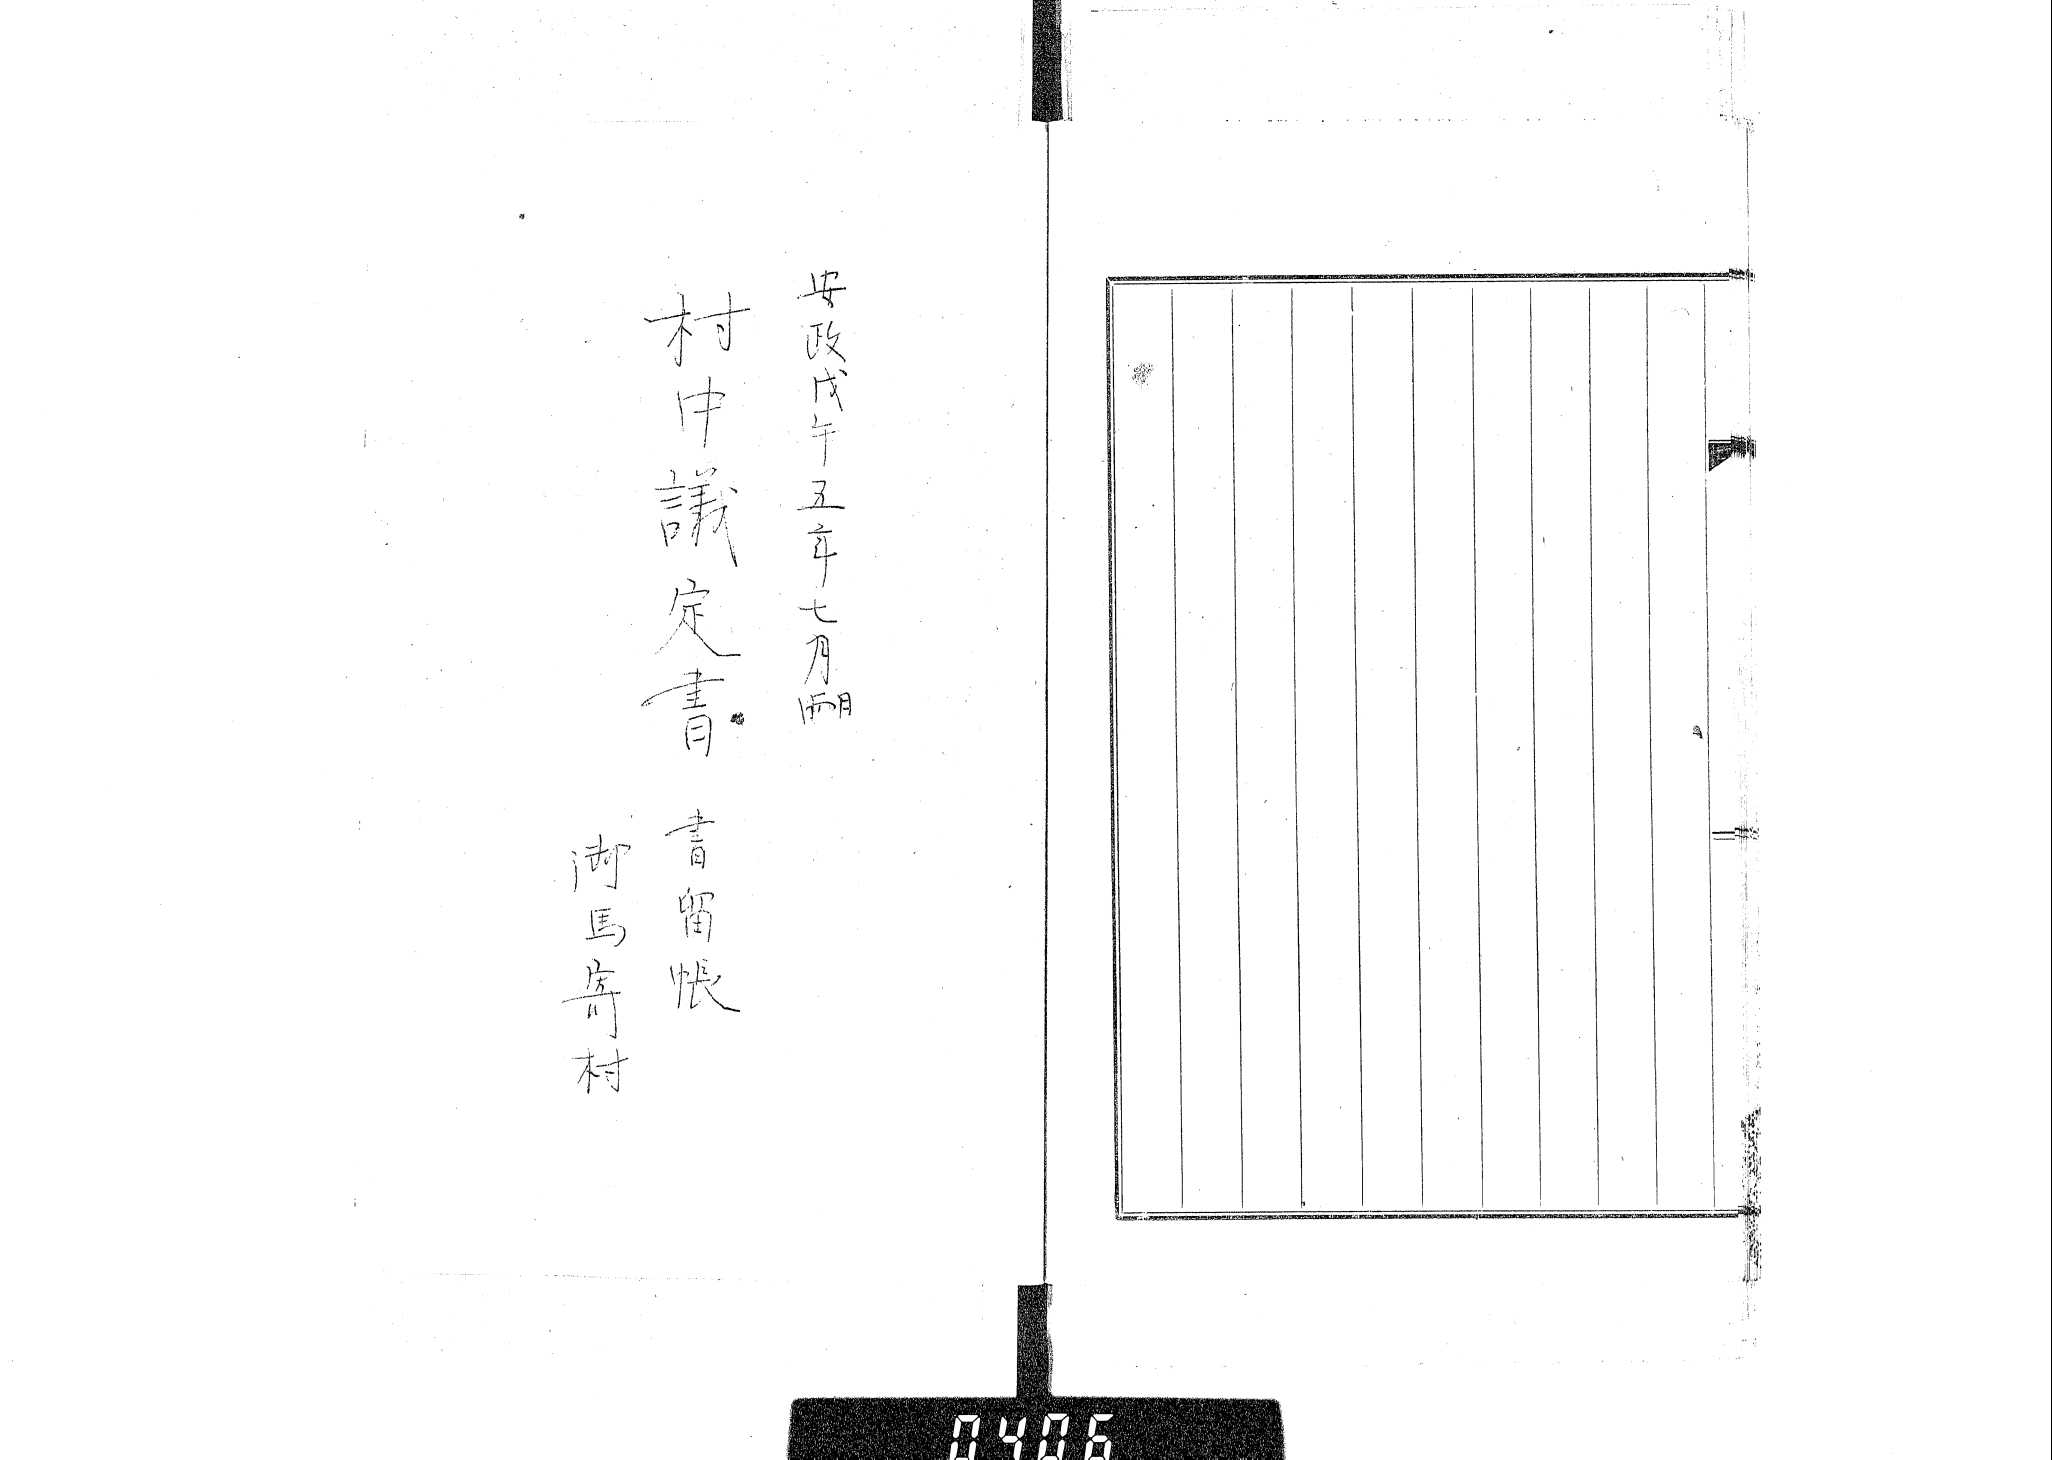 安政戊午五年七月
村中議定書 書留帳
御馬寄村
0406